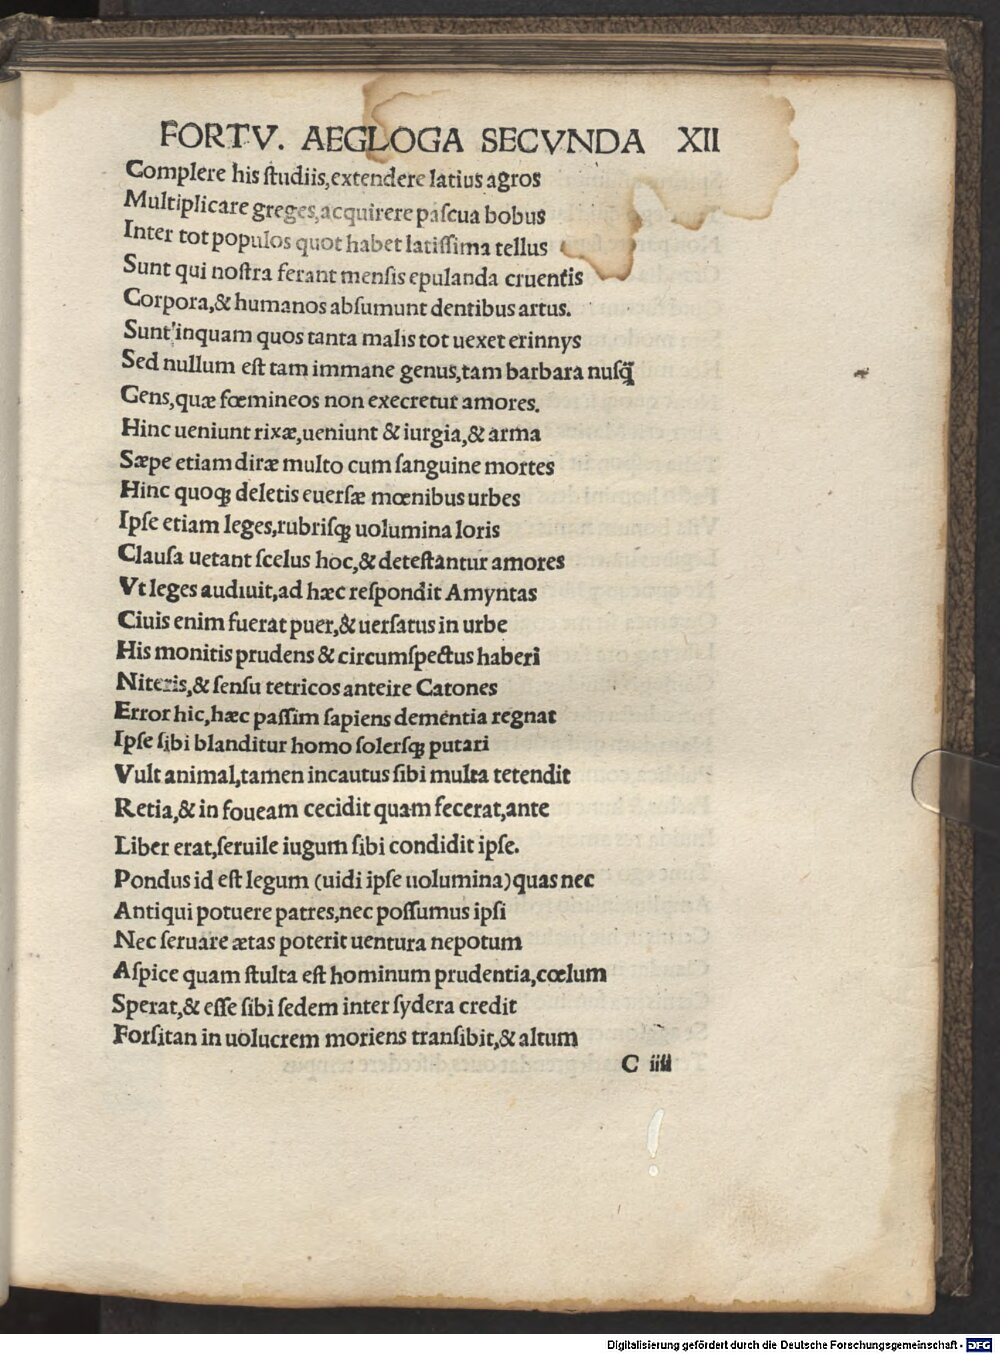 FORTV. AEGLOGA SECVNDA XII
Complere his ſtudiis,extendere latius agros
Multiplicare greges,acquirere paſcua bobus
Inter tot populos quot habet latiſſima tellus
Sunt qui noſtra ferant menſis epulanda cruentis
Corpora,& humanos abſumunt dentibus artus.
Sunt inquam quos tanta malis tot uexet erinnys
Sed nullum eſt tam immane genus,tam barbara nuſq̃
Gens,quæ fœmineos non execretur amores.
Hinc ueniunt rixæ,ueniunt & iurgia,& arma
Sæpe etiam diræ multo cum ſanguine mortes
Hinc quoqꝫ deletis euerſæ mœnibus urbes
Ipſe etiam leges,rubriſqꝫ uolumina loris
Clauſa uetant ſcelus hoc,& deteſtantur amores
Vt leges audiuit,ad hæc reſpondit Amyntas
Ciuis enim fuerat puer,& uerſatus in urbe
His monitis prudens & circumſpectus haberi
Niteris,& ſenſu tetricos anteire Catones
Error hic,hæc paſſim ſapiens dementia regnat
Ipſe ſibi blanditur homo ſolerſqꝫ putari
Vult animal,tamen incautus ſibi multa tetendit
Retia,& in foueam cecidit quam fecerat,ante
Liber erat,ſeruile iugum ſibi condidit ipſe.
Pondus id eſt legum (uidi ipſe uolumina)quas nec
Antiqui potuere patres,nec poſſumus ipſi
Nec ſeruare ætas poterit uentura nepotum
Aſpice quam ſtulta eſt hominum prudentia,cœlum
Sperat,& eſſe ſibi ſedem inter ſydera credit
Forſitan in uolucrem moriens tranſibit,& altum
C iiii
Digitalisierung gefördert durch die Deutsche Forschungsgemeinschaft - DFG